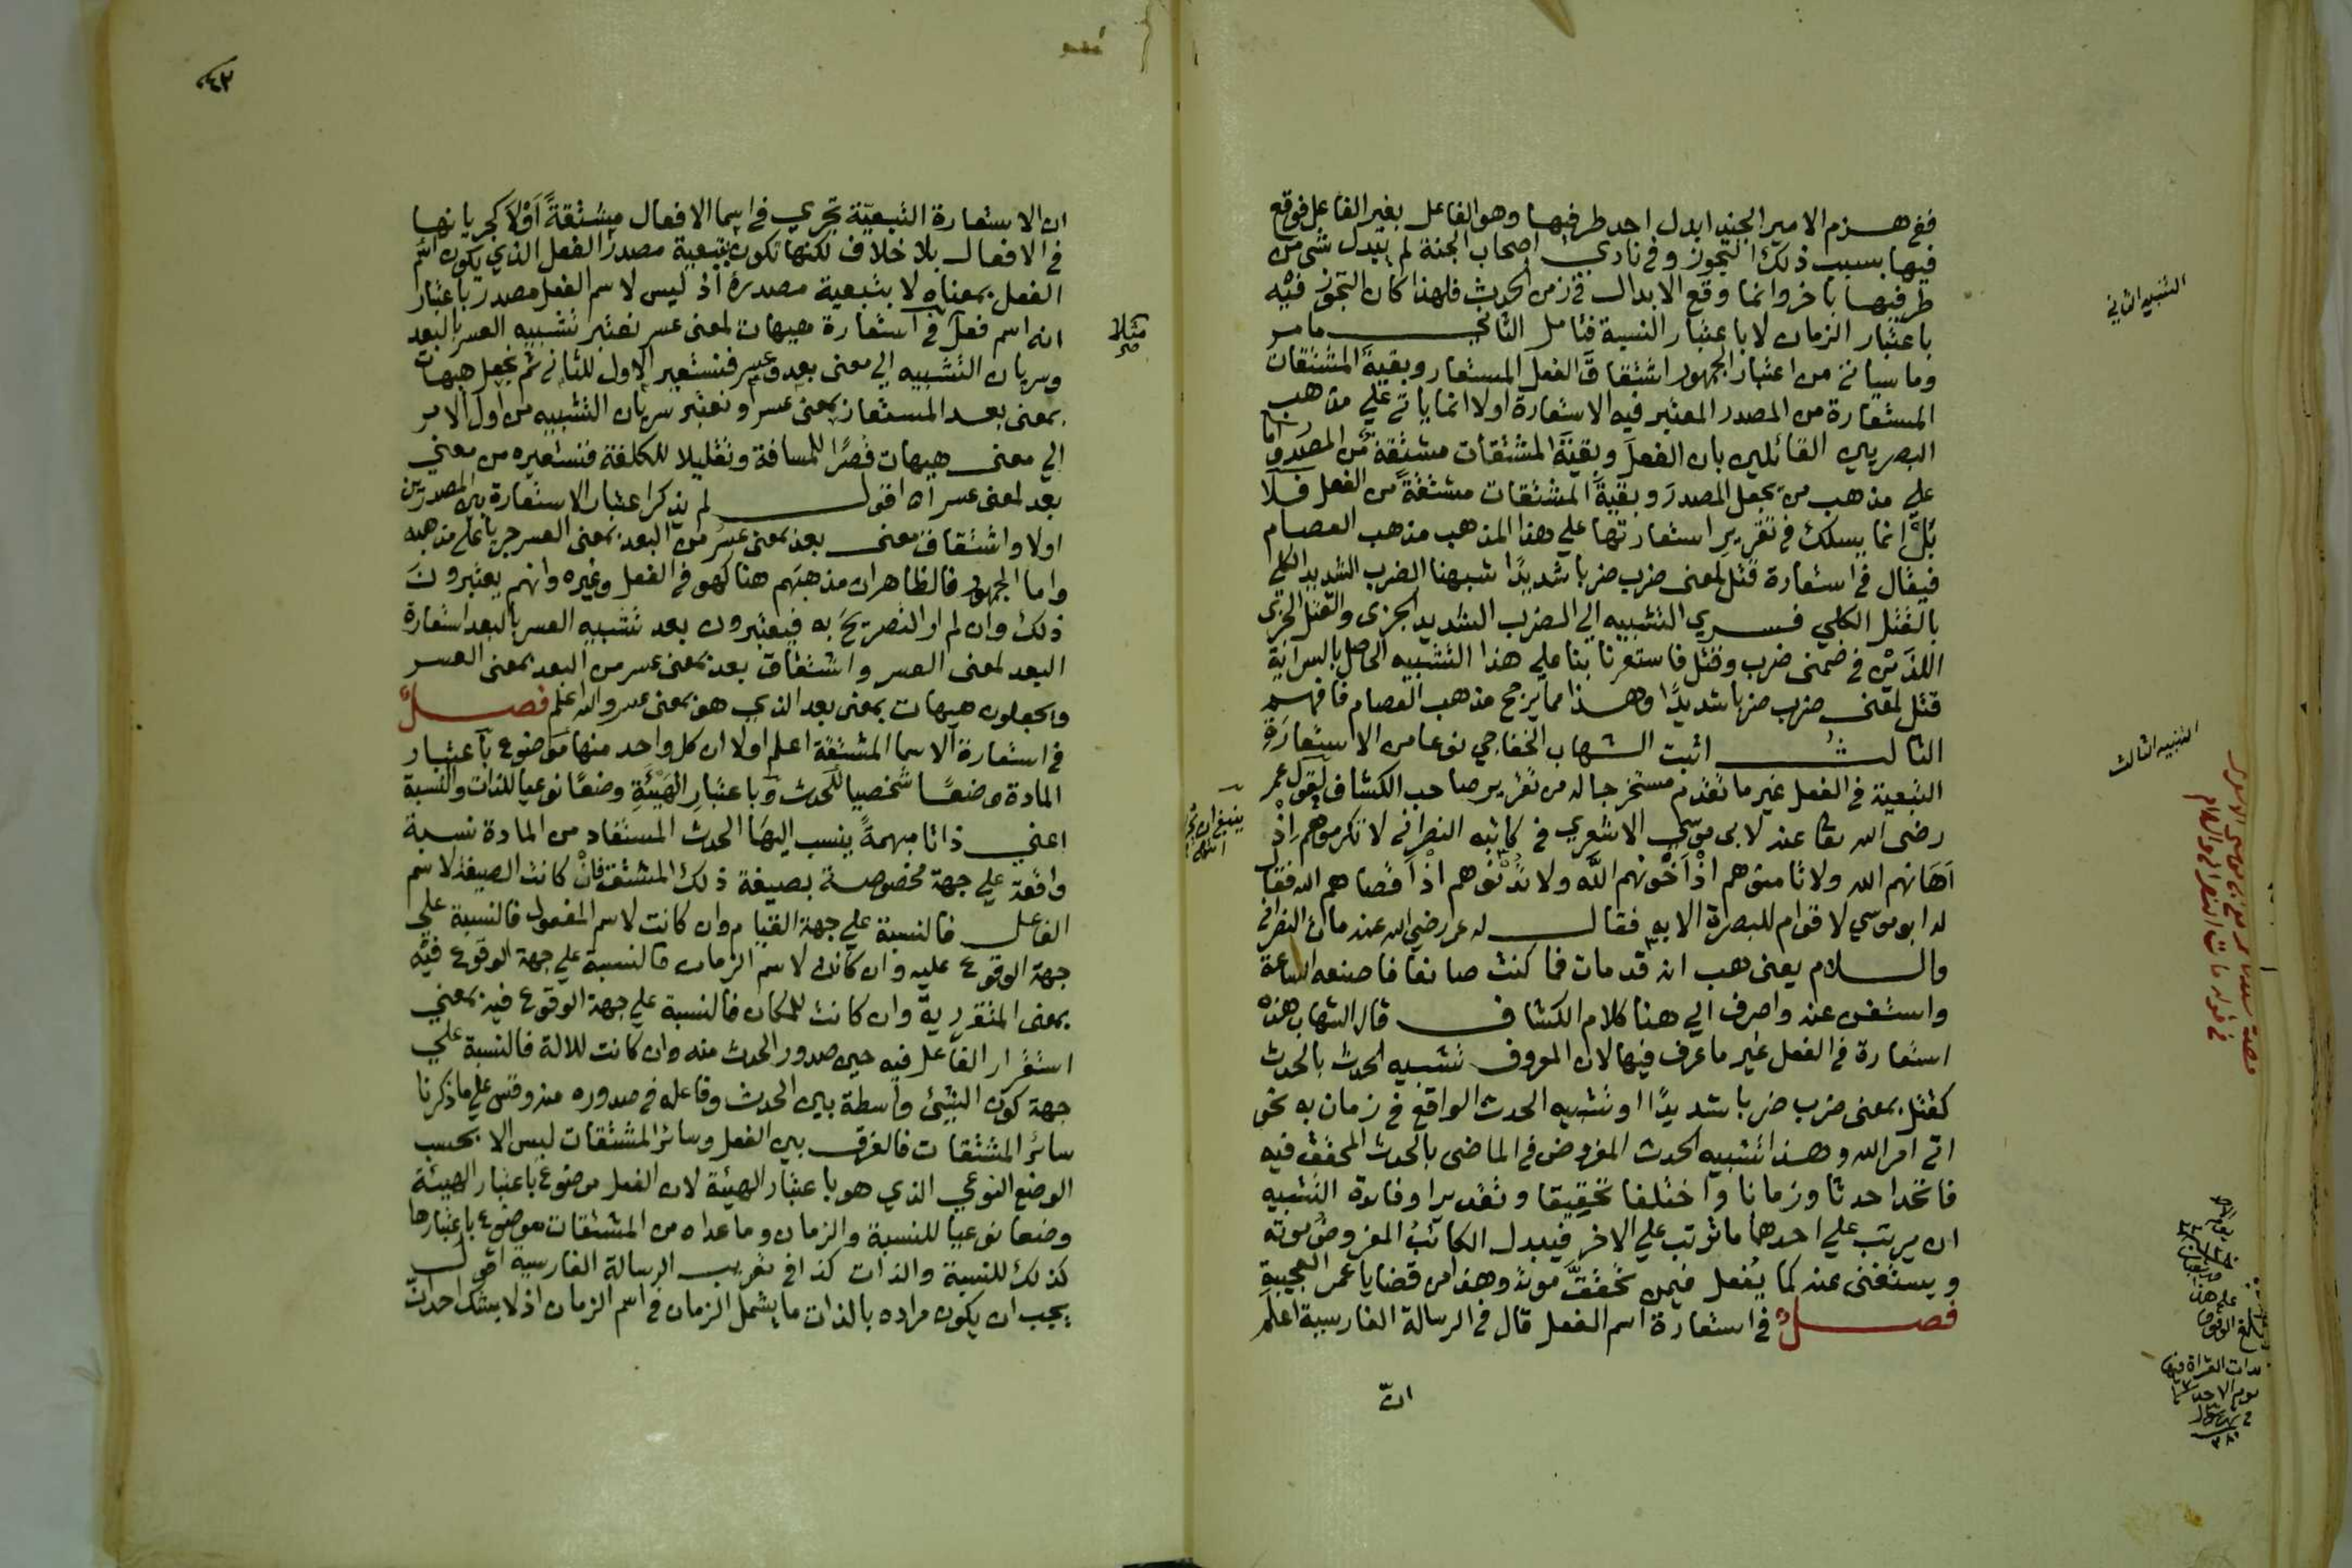 ففي هزم الامير الجند ابدل احد طرفيها وهو الفاعل بغير الفاعل فوقع
فيها بسبب ذلك التجوز وفي نادى اصحاب الجنة لم يبدل شي من
طرفيها باخر وانما وقع الابدال في زمن الحدث فلهذا كان التجوز فيه
باعتبار الزمان لا باعتبار النسبة فتامل الثاني ما مر
وما سيأتي من اعتبار الجمهور اشتقاق الفعل المستعار وبقية المشتقات
المستعارة من المصدر المعتبر فيه الاستعارة اولا انما ياتي علي مذهب
البصريين القائلين بان الفعل وبقية المشتقات مشتقة من المصدر واما
علي مذهب من يجعل المصدر وبقية المشتقات مشتقة من الفعل فلا
بل انما يسلك في تقرير استعارتها علي هذا المذهب مذهب العصام
فيقال في استعارة قتل لمعنى ضرب ضربا شديدا شبهنا الضرب الشديد الكلي
بالقتل الكلي فسري التشبيه الي الضرب الشديد الجزى والقتل الجزى
اللذين في ضمنى ضرب وقتل فاستعرنا بنا علي هذا التشبيه الحاصل بالسراية
قتل لمعنى ضرب ضربا شديدا وهذا مما يرجح مذهب العصام فافهم
الثالث اثبت الشهاب الخفاجي نوعا من الاستعارة
التبعية في الفعل غير ما تقدم مستخرجا له من تقرير صاحب الكشاف لقول عمر
رضى الله تعا عنه لابى موسى الاشعري في كاتبه النصراني لا تكرموهم اذ
اهانهم الله ولا تامنوهم اذ اخونهم الله ولا تدنوهم اذ اقصاهم الله فقال
له ابو موسي لا قوام للبصرة الا به فقال له عمر رضي الله عنه مات النصراني
والسلام يعنى هب انه قد مات فما كنت صانعا فاصنعه الساعة
واستغن عنه واصرف الي هنا كلام الكشاف قال الشهاب هذه
استعارة في الفعل غير ما عرف فيها لان المعروف تشبيه الحدث بالحدث
كقتل بمعنى ضرب ضربا شديدا او تشبيه الحدث الواقع في زمان به نحو
اتى امر الله وهذا تشبيه الحدث المفروض في الماضى بالحدث المحقق فيه
فاتحدا حدثا وزمانا واختلفا تحقيقا وتقديرا وفائدة التشبيه
ان يرتب علي احدهما ما ترتب علي الاخر فيبدل الكاتب المفروض موته
ويستغنى عنه كما يفعل فيمن تحقق موته وهذا من قضايا عمر العجيبة
فصل في استعارة اسم الفعل قال في الرسالة الفارسية اعلم
ان
التنبيه الثاني
التنبيه الثالث
ان الاستعارة التبعية تجري في اسما الافعال مشتقة اولا كجريانها
في الافعال بلا خلاف لكنها تكون بتبعية مصدر الفعل الذي يكون اسم
الفعل بمعناه لا بتبعية مصدره اذ ليس لاسم الفعل مصدر باعتبار
انه اسم فعل في استعارة هيهات لمعنى عسر نعتبر تشبيه العسر بالبعد
وسريان التشبيه الي معنى بعد وعسر فنستعير الاول للثاني ثم نجعل هيهات
بمعنى بعد المستعار بمعنى عسر او نعتبر سريان التشبيه من اول الامر
الي معنى هيهات قصرا للمسافة وتقليلا للكلفة فنستعيره من معني
بعد لمعنى عسر اه اقول لم يذكر اعتبار الاستعارة بين المصدرين
اولا واشتقاق معنى بعد بمعنى عسر من البعد بمعنى العسر جريا علي مذهبه
واما الجمهور فالظاهر ان مذهبهم هنا كهو في الفعل وغيره وانهم يعتبرون
ذلك وان لم ار التصريح به فيعتبرون بعد تشبيه العسر بالبعد استعارة
البعد لمعنى العسر واشتقاق بعد بمعنى عسر من البعد بمعنى العسر
ويجعلون هيهات بمعنى بعد الذي هو بمعنى عسر والله اعلم فصل
في استعارة الاسما المشتقة اعلم اولا ان كل واحد منها موضوع باعتبار
المادة وضعا شخصيا للحدث وباعتبار الهيئة وضعا نوعيا للذات والنسبة
اعني ذاتا مبهمة ينسب اليها الحدث المستفاد من المادة نسبة
واقعة علي جهة مخصوصة بصيغة ذلك المشتق فان كانت الصيغة لاسم
الفاعل فالنسبة علي جهة القيام وان كانت لاسم المفعول فالنسبة علي
جهة الوقوع عليه وان كانت لاسم الزمان فالنسبة علي جهة الوقوع فيه
بمعنى المتقررية وان كانت للمكان فالنسبة علي جهة الوقوع فيه بمعني
استقرار الفاعل فيه حين صدور الحدث منه وان كانت للالة فالنسبة علي
جهة كون الشيئ واسطة بين الحدث وفاعله في صدوره منه وقس علي ما ذكرنا
سائر المشتقات فالفرق بين الفعل وسائر المشتقات ليس الا بحسب
الوضع النوعي الذي هو باعتبار الهيئة لان الفعل موضوع باعتبار الهيئة
وضعا نوعيا للنسبة والزمان وما عداه من المشتقات موضوع باعتبارها
كذلك للنسبة والذات كذا في تعريب الرسالة الفارسية اقول
يجب ان يكون مراده بالذات ما يشمل الزمان في اسم الزمان اذ لا يشك احد ان
مثلا
صح